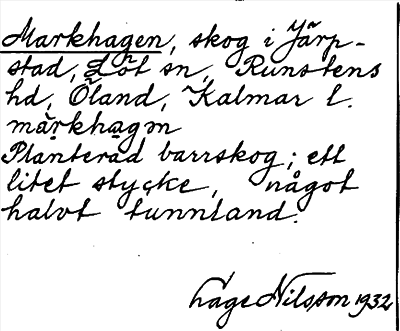 Markhagen, skog i Järp-
stad, Löt sn, Runstens
hd, Öland, Kalmar l.
märkhagən
Planterad barrskog; ett
litet stycke, något
halvt tunnland.
Åge Nilsson 1932